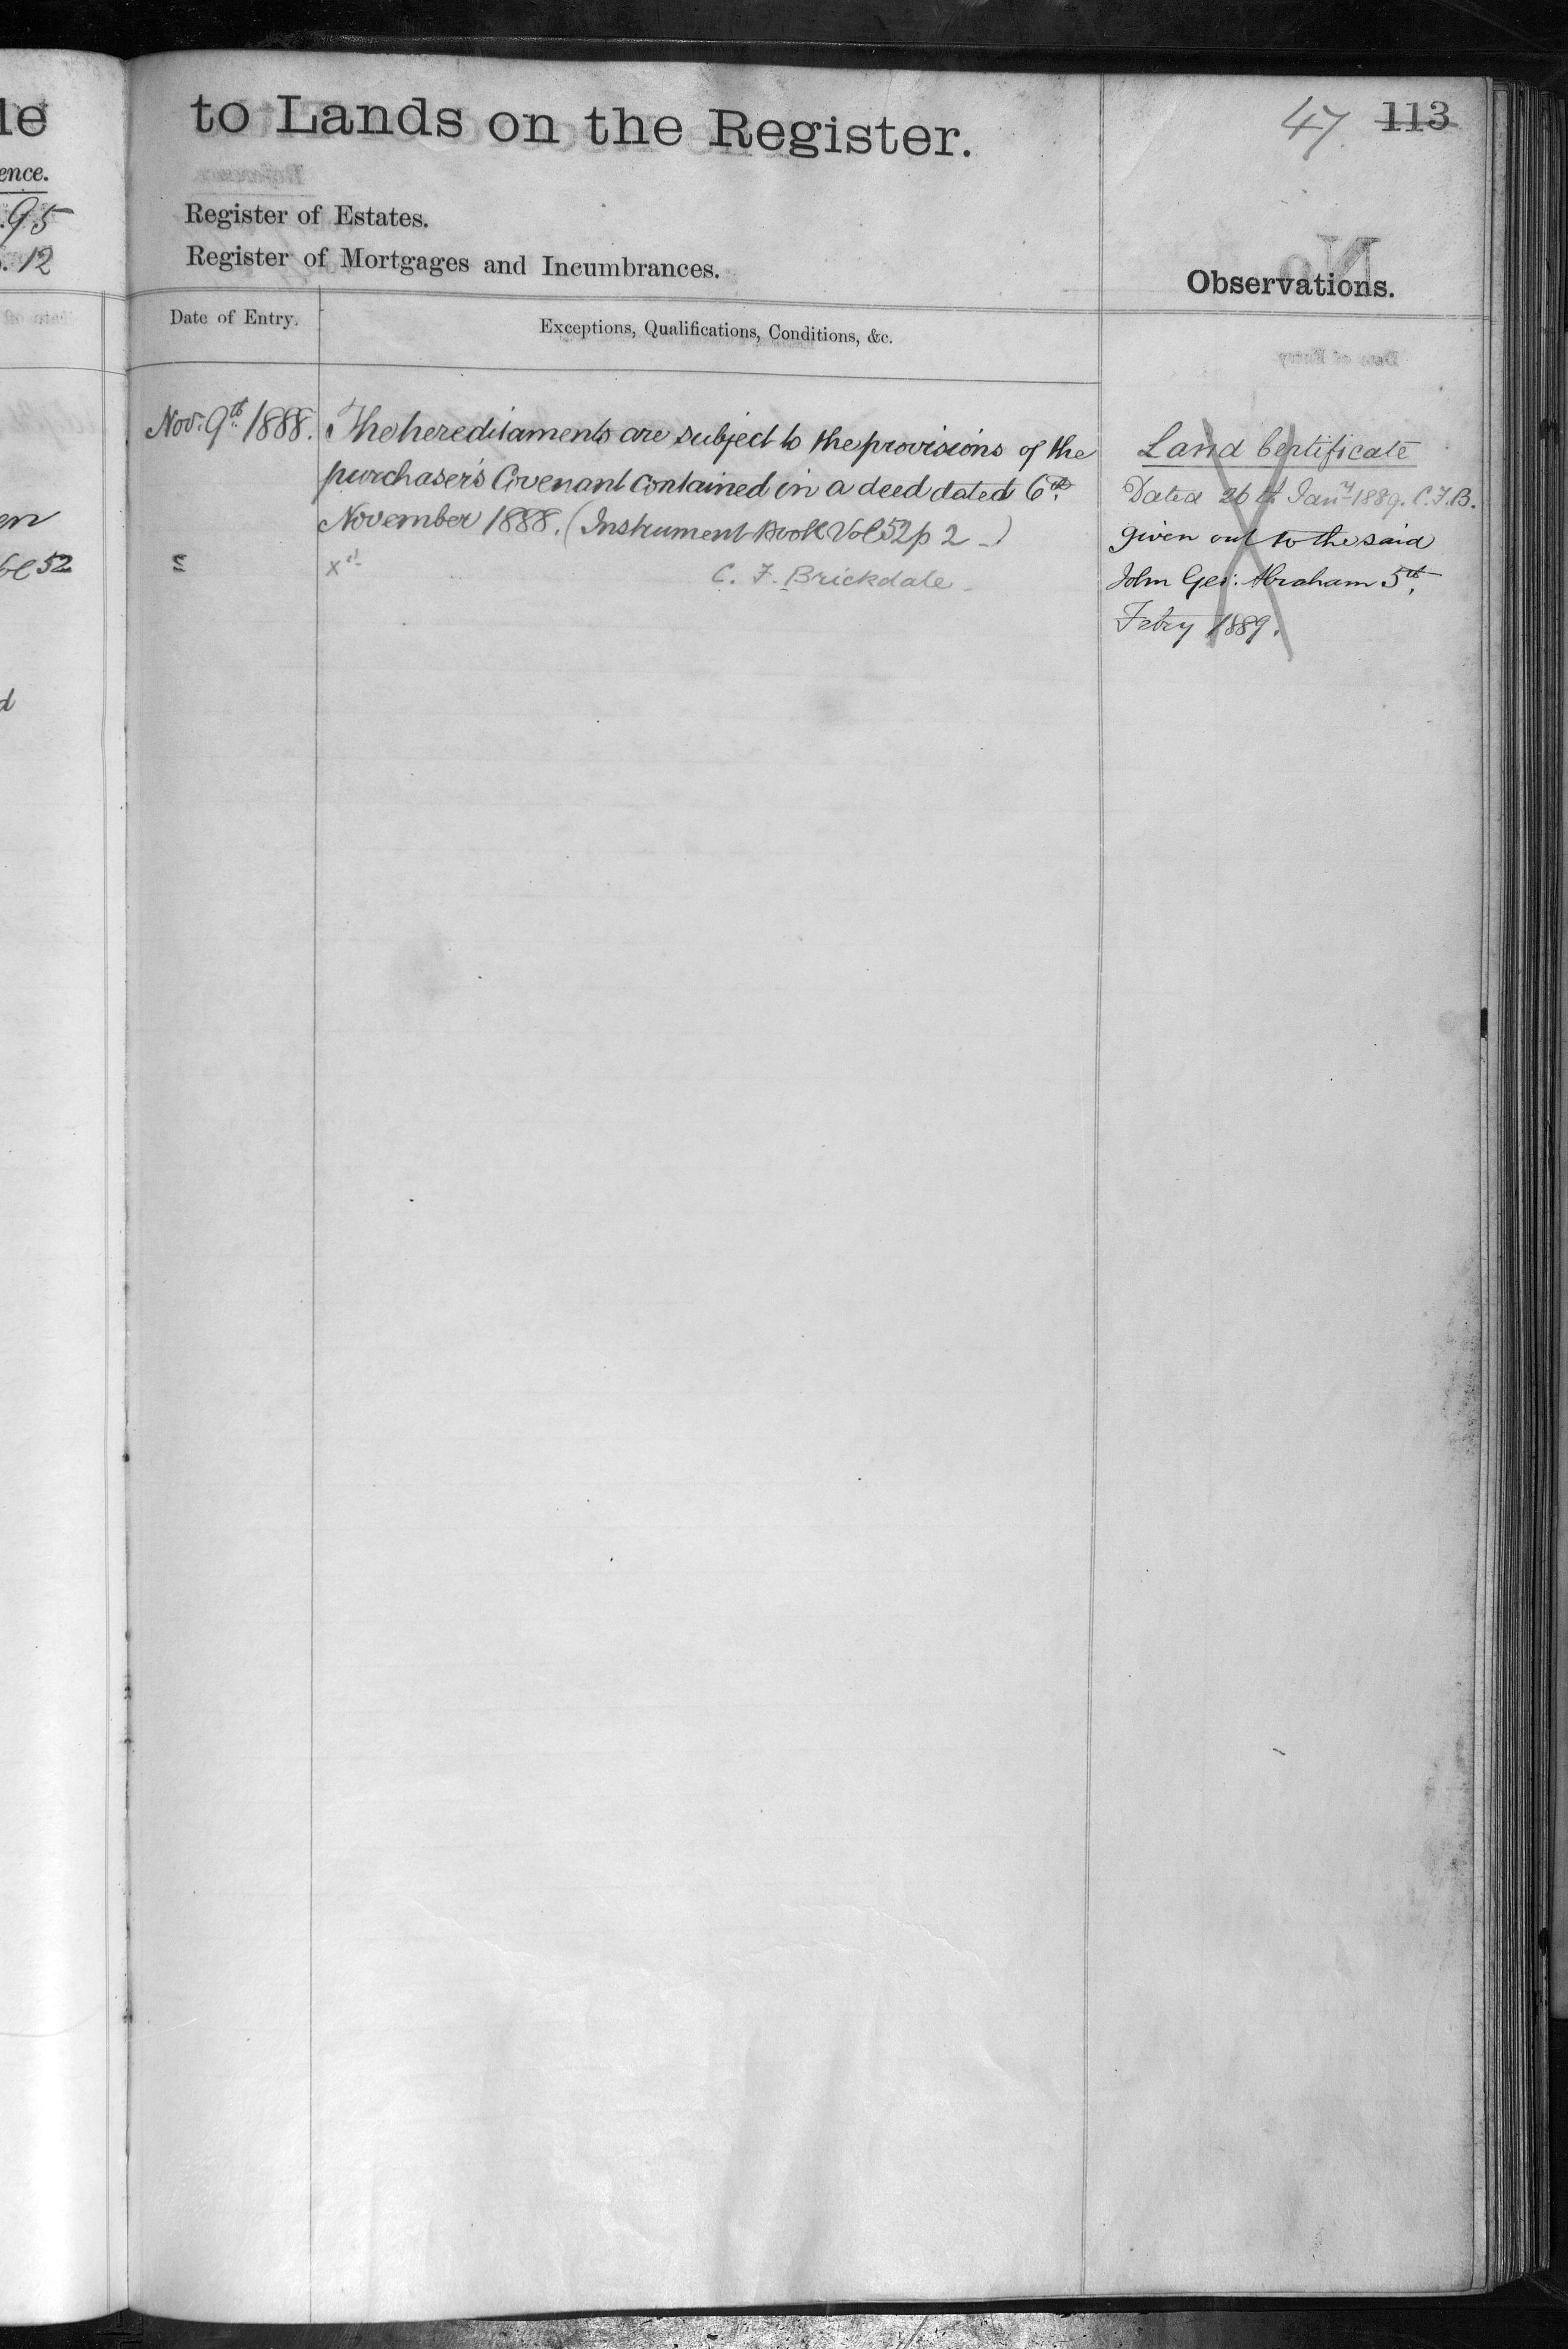 le
ence.
.95
. 12
en
52
d
to Lands on the Register.
47 113
Register of Estates.
Register of Mortgages and Incumbrances.
Observations.
Date of Entry.
Exceptions, Qualifications, Conditions, &c.
Nov: 9th 1888.
The hereditaments are subject to the provisions of the
purchaser's Covenant contained in a deed dated 6th
November 1888. (Instrument Book Vol 52 p 2 -)
C. F. Brickdale
Land Certificate
Dated 26th Jany 1889. C.F.B.
given out to the said
John Geo: Abraham 5th
Febry 1889.